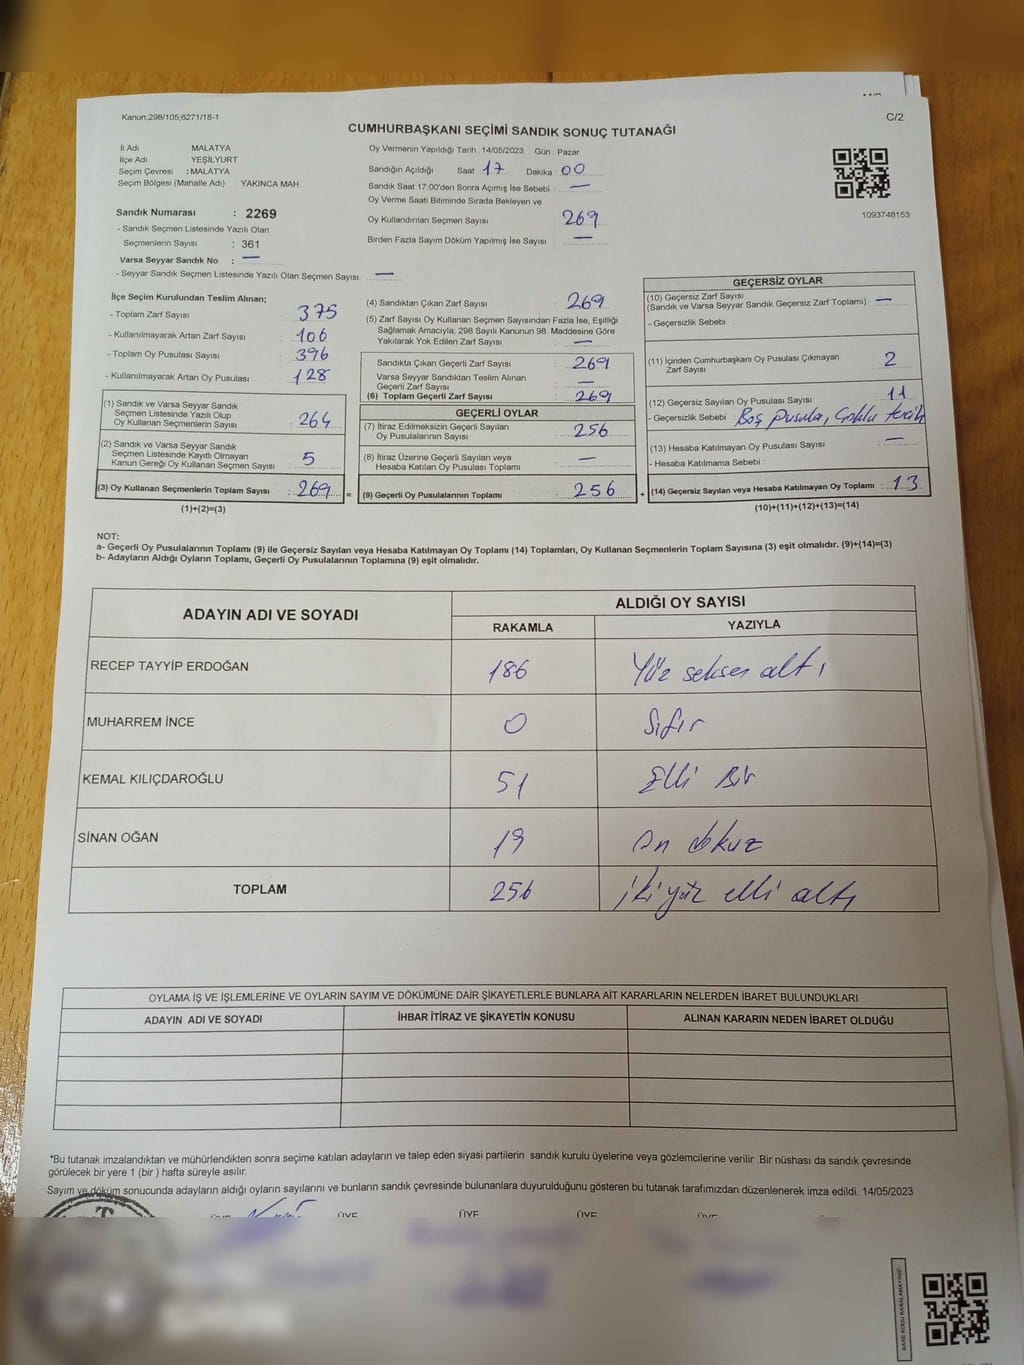 Kanun;298/105;6271/18-1
C/2
CUMHURBAŞKANI SEÇİMİ SANDIK SONUÇ TUTANAĞI
İl Adı MALATYA
İlçe Adı : YEŞİLYURT
Seçim Çevresi : MALATYA
Seçim Bölgesi (Mahalle Adı) : YAKINCA MAH.
Sandık Numarası : 2269
- Sandık Seçmen Listesinde Yazılı Olan
Seçmenlerin Sayısı : 361
Varsa Seyyar Sandık No : —
- Seyyar Sandık Seçmen Listesinde Yazılı Olan Seçmen Sayısı: —
Oy Vermenin Yapıldığı Tarih : 14/05/2023 Gün : Pazar
Sandığın Açıldığı Saat : 17 Dakika : 00
Sandık Saat 17:00'den Sonra Açımış İse Sebebi : —
Oy Verme Saati Bitiminde Sırada Bekleyen ve
Oy Kullandırılan Seçmen Sayısı : 269
Birden Fazla Sayım Döküm Yapılmış İse Sayısı : —
1093748153
İlçe Seçim Kurulundan Teslim Alınan;
- Toplam Zarf Sayısı : 375
- Kullanılmayarak Artan Zarf Sayısı : 106
- Toplam Oy Pusulası Sayısı : 396
- Kullanılmayarak Artan Oy Pusulası : 128
(1) Sandık ve Varsa Seyyar Sandık
Seçmen Listesinde Yazılı Olup
Oy Kullanan Seçmenlerin Sayısı : 264
(2) Sandık ve Varsa Seyyar Sandık
Seçmen Listesinde Kayıtlı Olmayan
Kanun Gereği Oy Kullanan Seçmen Sayısı : 5
(3) Oy Kullanan Seçmenlerin Toplam Sayısı : 269 =
(1)+(2)=(3)
(4) Sandıktan Çıkan Zarf Sayısı : 269
(5) Zarf Sayısı Oy Kullanan Seçmen Sayısından Fazla İse, Eşitliği
Sağlamak Amacıyla; 298 Sayılı Kanunun 98. Maddesine Göre
Yakılarak Yok Edilen Zarf Sayısı : —
Sandıkta Çıkan Geçerli Zarf Sayısı : 269
Varsa Seyyar Sandıktan Teslim Alınan
Geçerli Zarf Sayısı : —
(6) Toplam Geçerli Zarf Sayısı : 269
GEÇERLİ OYLAR
(7) İtiraz Edilmeksizin Geçerli Sayılan
Oy Pusulalarının Sayısı : 256
(8) İtiraz Üzerine Geçerli Sayılan veya
Hesaba Katılan Oy Pusulası Toplamı : —
(9) Geçerli Oy Pusulalarının Toplamı : 256 +
GEÇERSİZ OYLAR
(10) Geçersiz Zarf Sayısı
(Sandık ve Varsa Seyyar Sandık Geçersiz Zarf Toplamı) : —
- Geçersizlik Sebebi :
(11) İçinden Cumhurbaşkanı Oy Pusulası Çıkmayan
Zarf Sayısı : 2
(12) Geçersiz Sayılan Oy Pusulası Sayısı : 11
- Geçersizlik Sebebi : Boş pusula, Çoklu tercih
(13) Hesaba Katılmayan Oy Pusulası Sayısı : —
- Hesaba Katılmama Sebebi :
(14) Geçersiz Sayılan veya Hesaba Katılmayan Oy Toplamı : 13
(10)+(11)+(12)+(13)=(14)
NOT:
a- Geçerli Oy Pusulalarının Toplamı (9) ile Geçersiz Sayılan veya Hesaba Katılmayan Oy Toplamı (14) Toplamları, Oy Kullanan Seçmenlerin Toplam Sayısına (3) eşit olmalıdır. (9)+(14)=(3)
b- Adayların Aldığı Oyların Toplamı, Geçerli Oy Pusulalarının Toplamına (9) eşit olmalıdır.
ADAYIN ADI VE SOYADI ALDIĞI OY SAYISI
RAKAMLA YAZIYLA
RECEP TAYYİP ERDOĞAN 186 Yüz seksen altı
MUHARREM İNCE 0 Sıfır
KEMAL KILIÇDAROĞLU 51 Elli Bir
SİNAN OĞAN 19 On dokuz
TOPLAM 256 iki yüz elli altı
OYLAMA İŞ VE İŞLEMLERİNE VE OYLARIN SAYIM VE DÖKÜMÜNE DAİR ŞİKAYETLERLE BUNLARA AİT KARARLARIN NELERDEN İBARET BULUNDUKLARI
ADAYIN ADI VE SOYADI İHBAR İTİRAZ VE ŞİKAYETİN KONUSU ALINAN KARARIN NEDEN İBARET OLDUĞU
*Bu tutanak imzalandıktan ve mühürlendikten sonra seçime katılan adayların ve talep eden siyasi partilerin sandık kurulu üyelerine veya gözlemcilerine verilir .Bir nüshası da sandık çevresinde
görülecek bir yere 1 (bir ) hafta süreyle asılır.
Sayım ve döküm sonucunda adayların aldığı oyların sayılarını ve bunların sandık çevresinde bulunanlara duyurulduğunu gösteren bu tutanak tarafımızdan düzenlenerek imza edildi. 14/05/2023
ÜYE ÜYE ÜYE ÜYE
KARE KODU KARALAMAYINIZ!